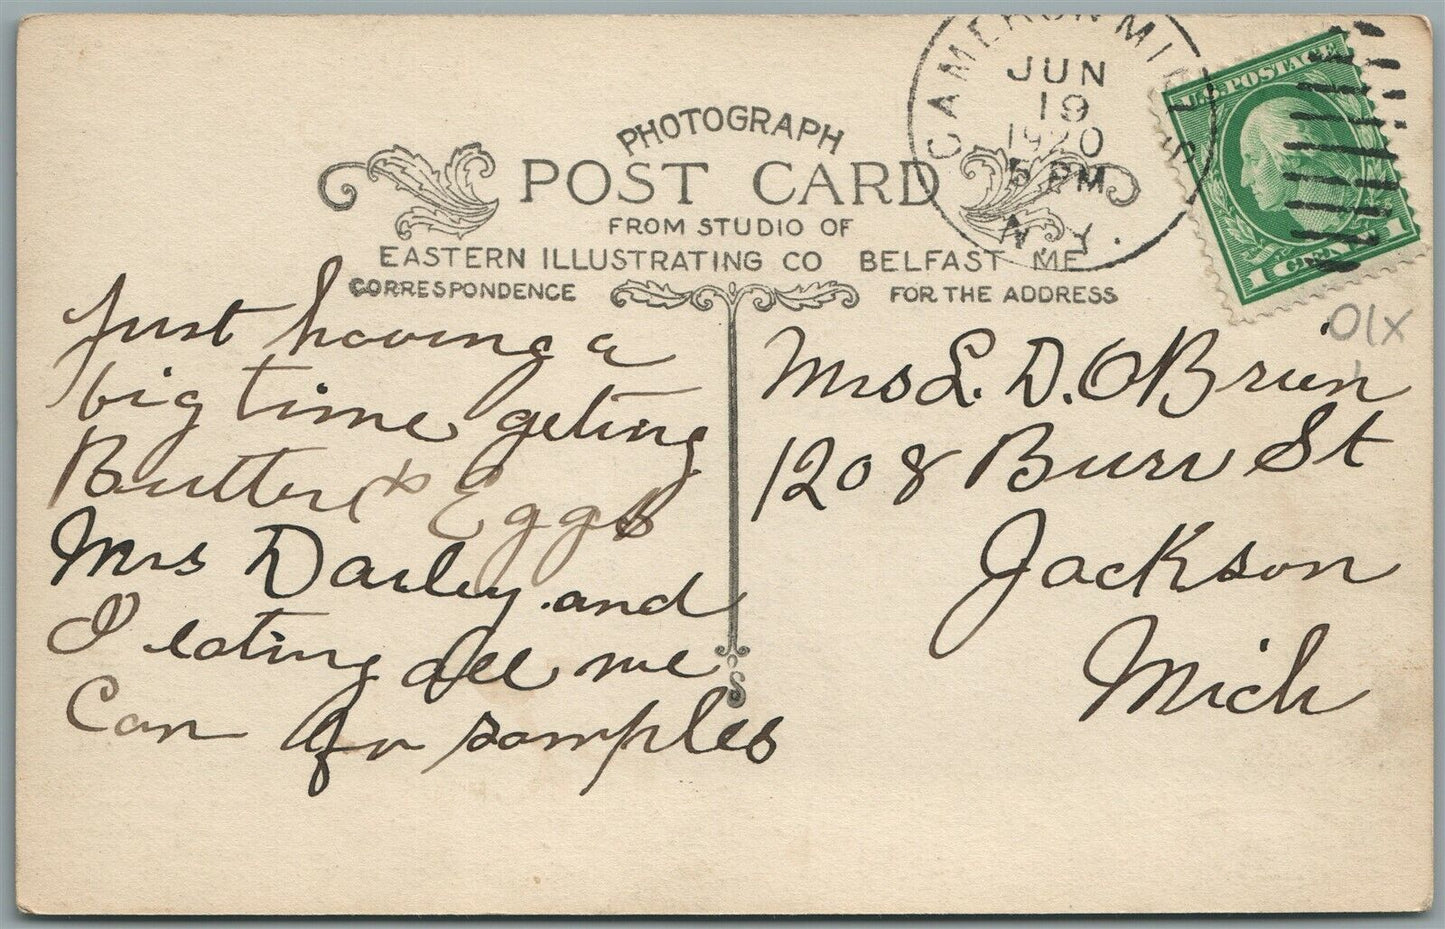 PHOTOGRAPH
POST CARD
FROM STUDIO OF
EASTERN ILLUSTRATING CO BELFAST ME
CORRESPONDENCE
FOR THE ADDRESS
CAMERON MILLS
JUN
19
1920
5 PM
N.Y.
U.S. POSTAGE
1 CENT 1
Just having a
big time geting
Butter & Eggs
Mrs Darley and
I eating all we
Can for samples
Mrs L. D. OBrien
1208 Burr St
Jackson
Mich
S
01X